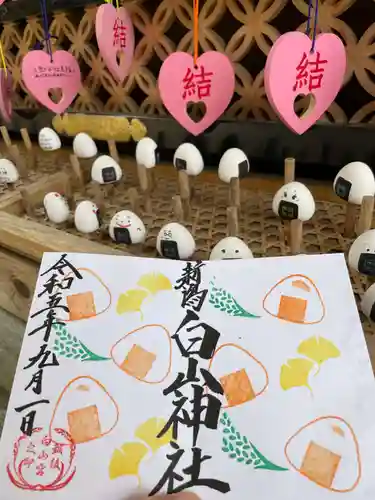 結
結
結
令和五年九月一日
新潟
白山神社